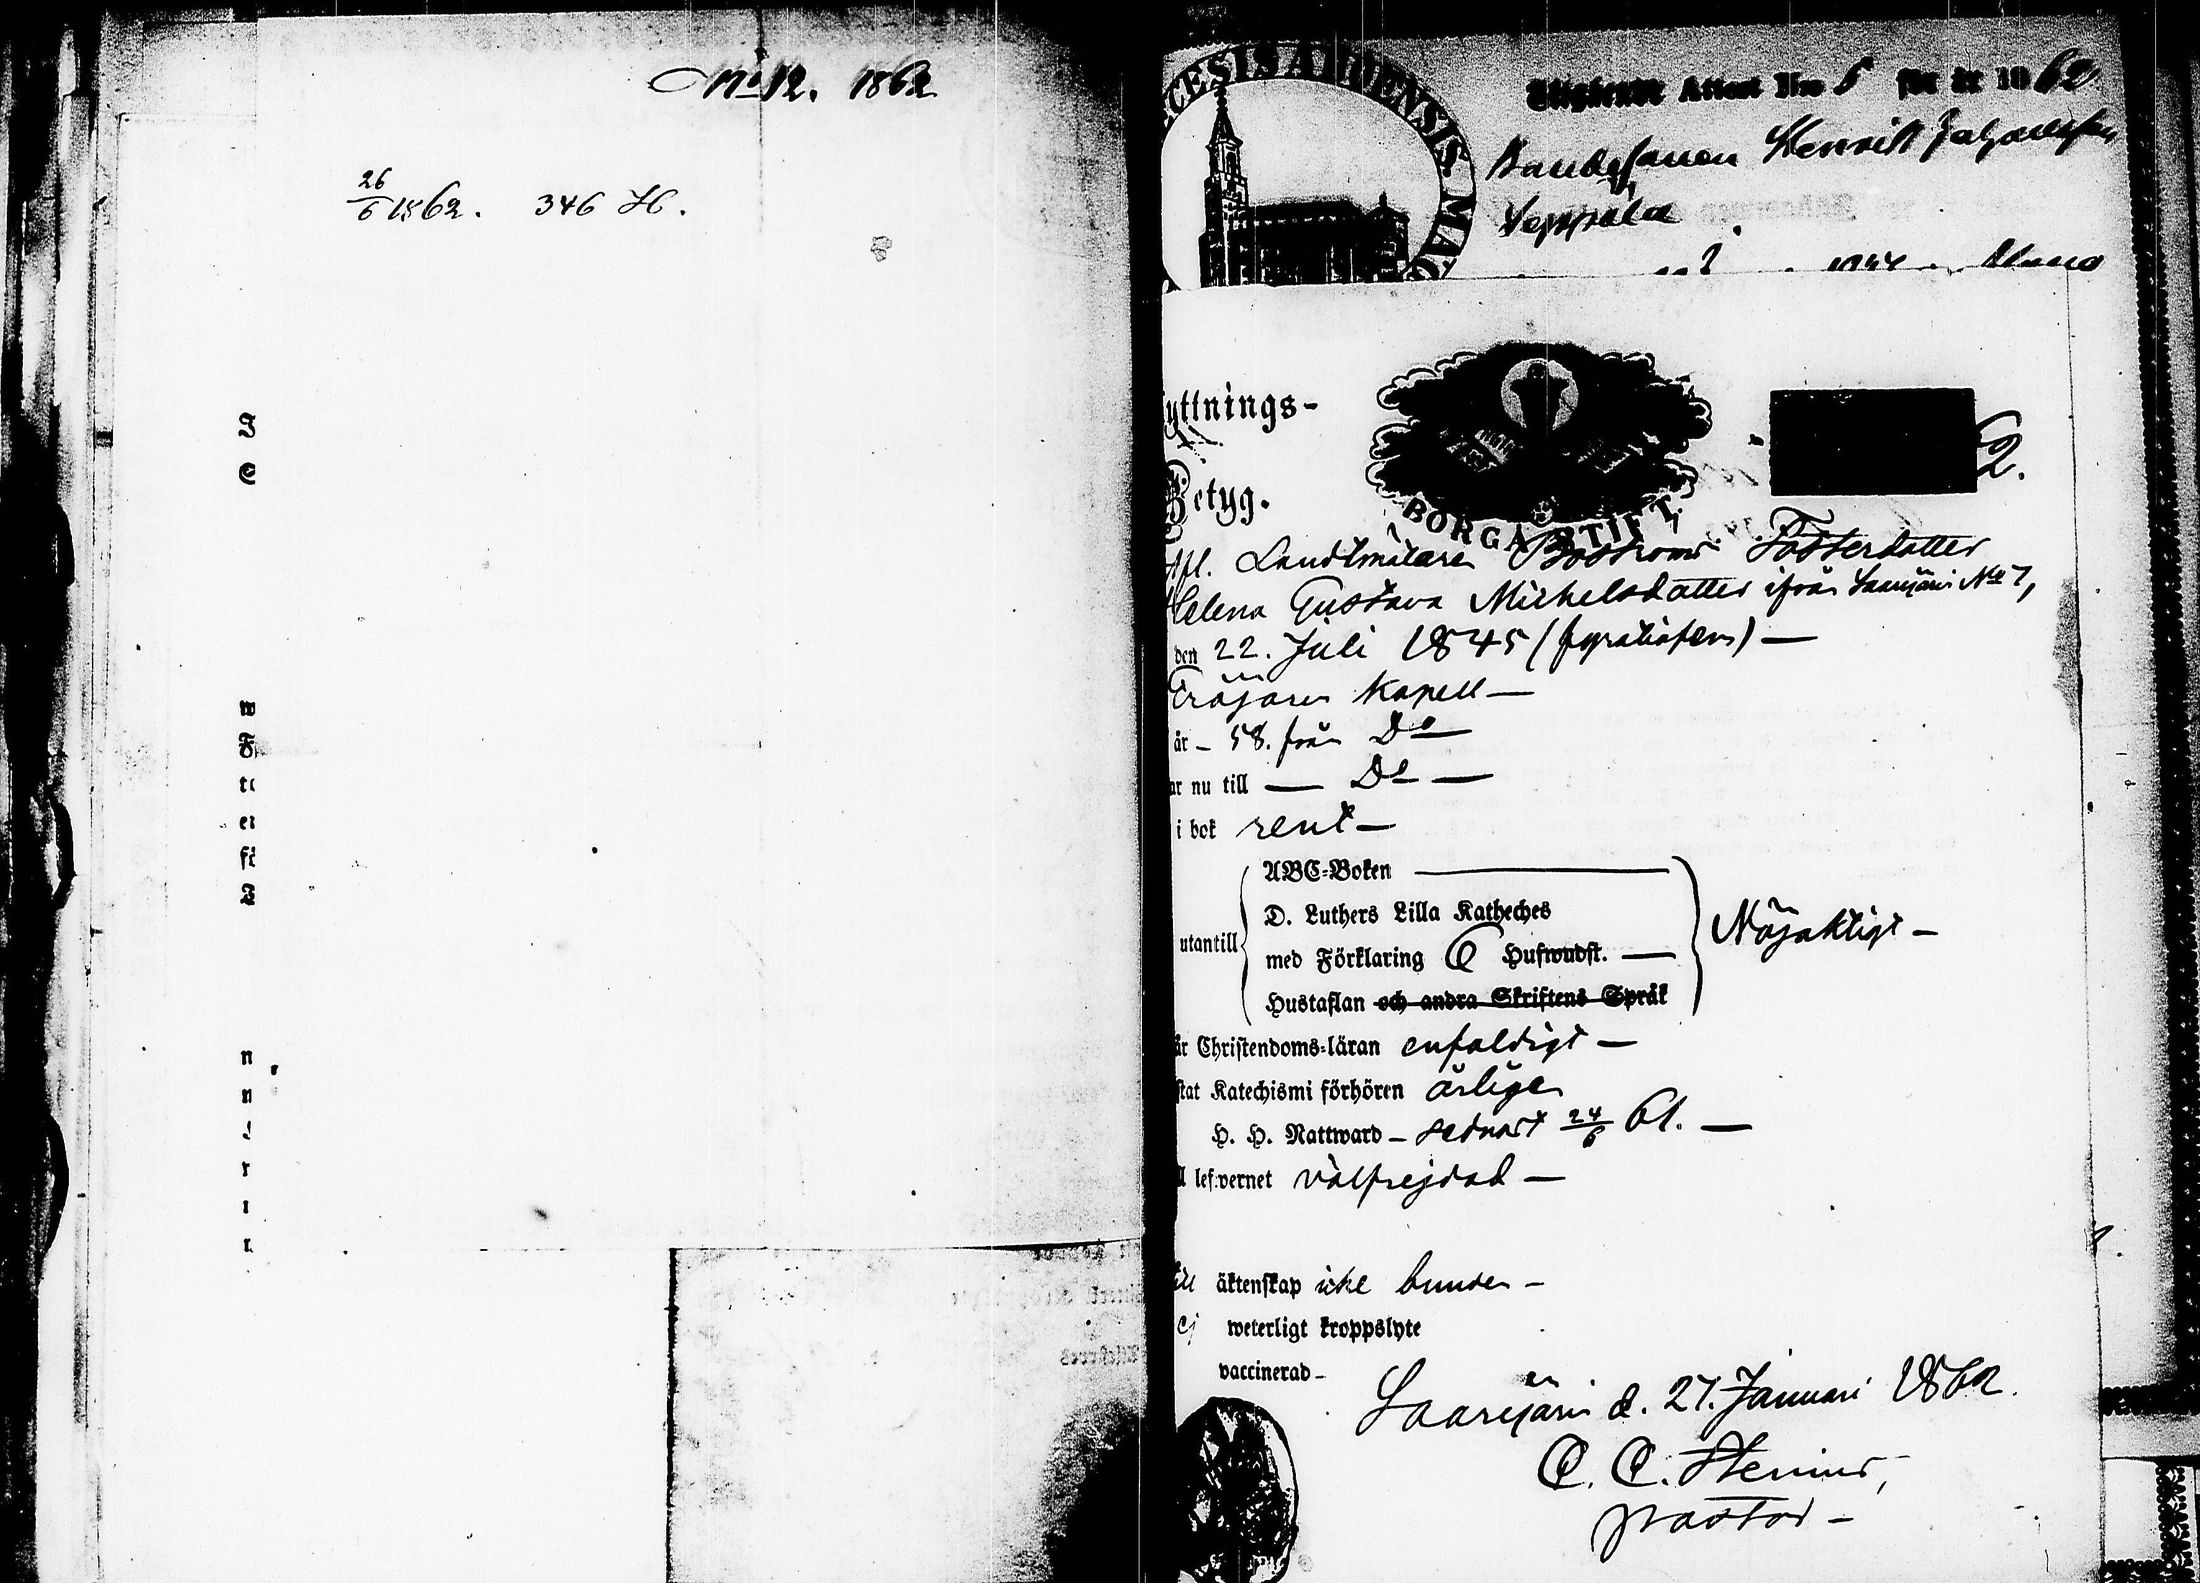 No 12. 1862
26/6 1862. 346 H.
DIOECESIS ABOENSIS MAG
Utgående Attest N:ro 5 för år 1862
Bondesonen Henrik
Seppälä
yttnings-
Betyg.
BORGÅ STIFT.
2.
Afl. Landtmätare Boströms Fosterdotter
Helena Gustava Michelsdotter ifrån Saarijärvi No 7,
den 22. Juli 1845 (fyratiofem) —
kapell —
år – 58. från Do —
ar nu till — Do —
i bok rent —
ABC-Boken
D. Luthers Lilla Katheches
utantill
med Förklaring Hufwudst. —
Nöjaktigt —
Hustaflan och andra Skriftens Språk
Christendoms-läran enfaldigt —
stat Katechismi förhören årligen
H. H. Nattward – sednast 24/6 61. —
lefvernet välfrejdad —
till äktenskap icke bunden —
ej weterligt kroppslyte
vaccinerad –
Saarijärvi d. 27. Januari 1862.
C. C. Stenius,
pastor —